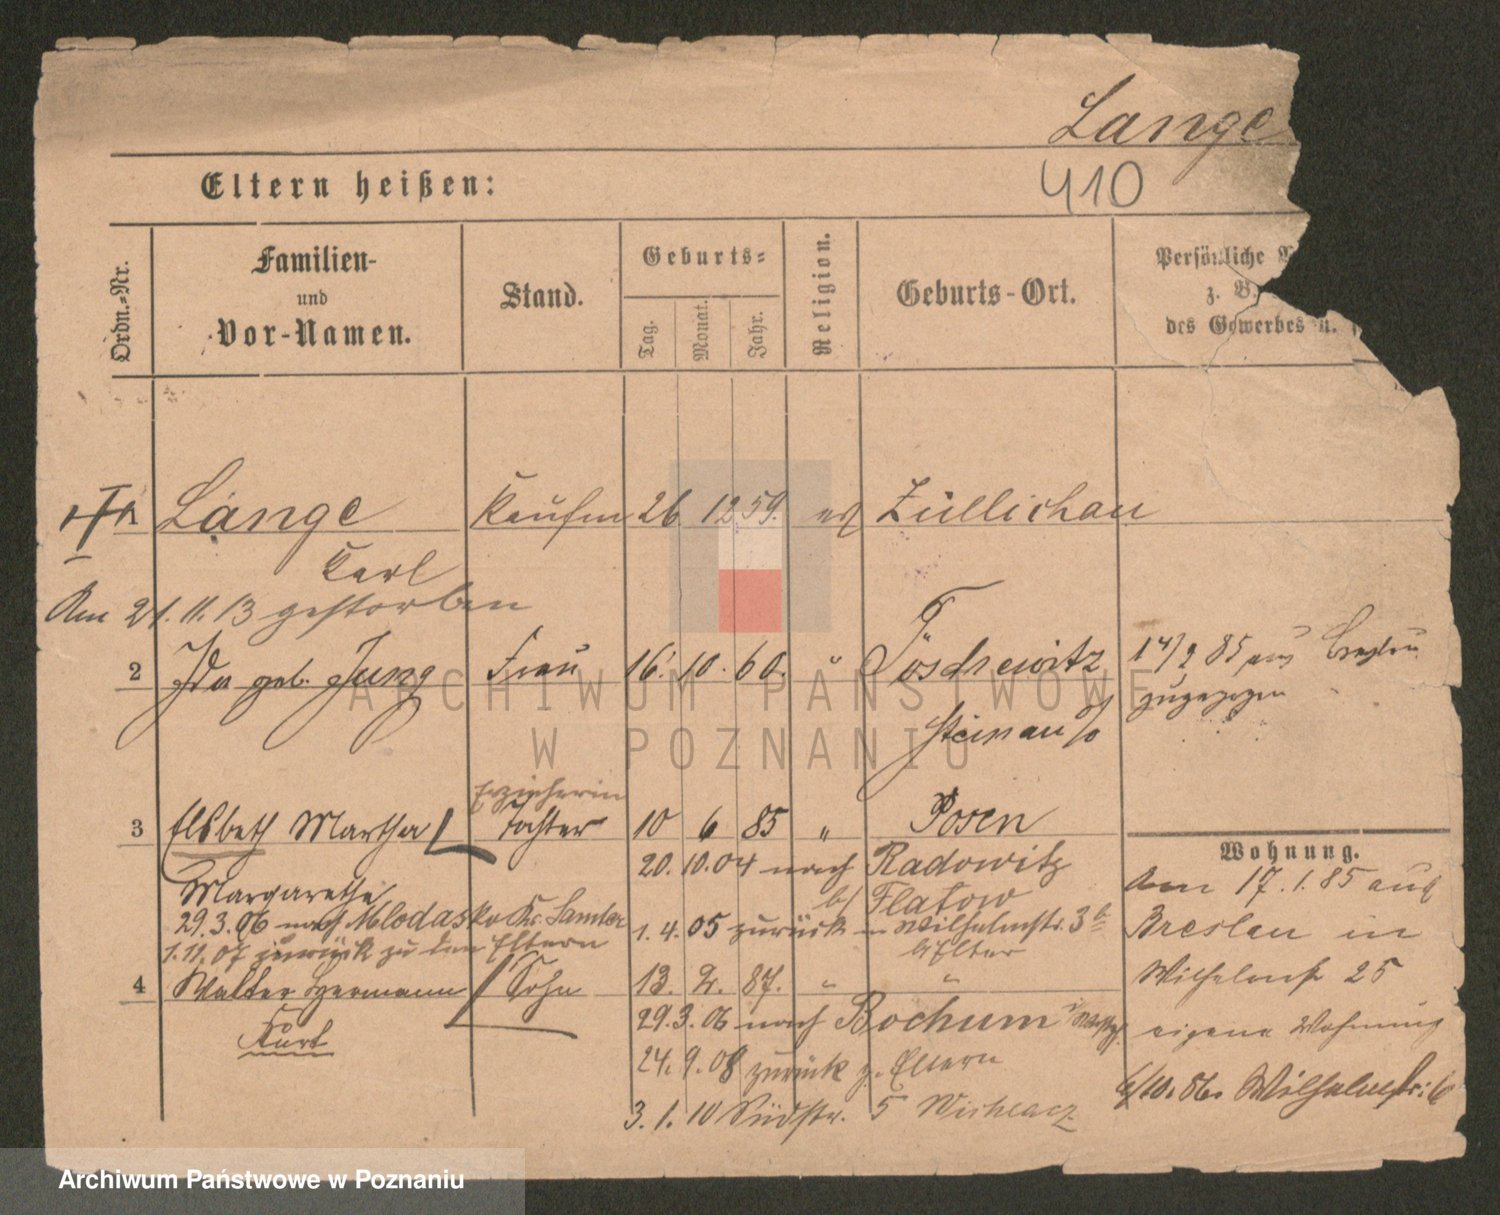 Lange
410
Eltern heißen:
Ordn.-Nr.
Familien-
und
Vor-Namen.
Stand.
Geburts-
Tag.
Monat.
Jahr.
Religion.
Geburts-Ort.
Persönliche
z. B.
des Gewerbes u.
Lange Kaufm 26 12 59. ev Züllichau
Karl
Am 21.11.13 gestorben
2 Ida geb. Jung Frau 16. 10. 60. "
14/2 85 aus Breslau
zugezogen
Steinau
Erzieherin
3 Elsbeth Martha Tochter 10 6 85 " Posen
Margarethe
20. 10. 04 nach Radowitz
b/ Flatow
29.3.06 nach Mlodasko Kr. Samter
1.4.05 zurück Wilhelmstr. 3
1.11.07 zurück zu den Eltern
4 Walter Hermann Sohn 13. 2. 87. " "
Kurt
29.3.06 nach Bochum
24.9.08 zurück z. Eltern
3.1.10 Südstr. 5
Wohnung.
Am 17.1.85 aus
Breslau in
Wilhelmstr 25
eigene Wohnung
6/10.86. Wilhelmstr.
ARCHIWUM PAŃSTWOWE
W POZNANIU
Archiwum Państwowe w Poznaniu